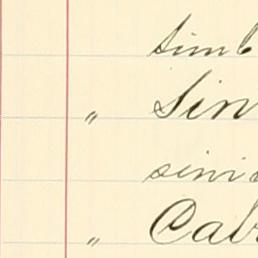 simb
" Sin
sini
" Cab